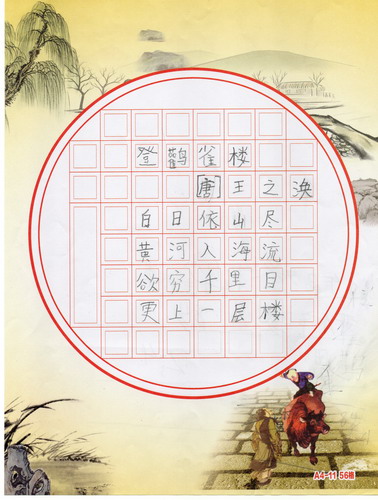 登鹳雀楼
[唐]王之涣
白日依山尽
黄河入海流
欲穷千里目
更上一层楼
A4-11 56格